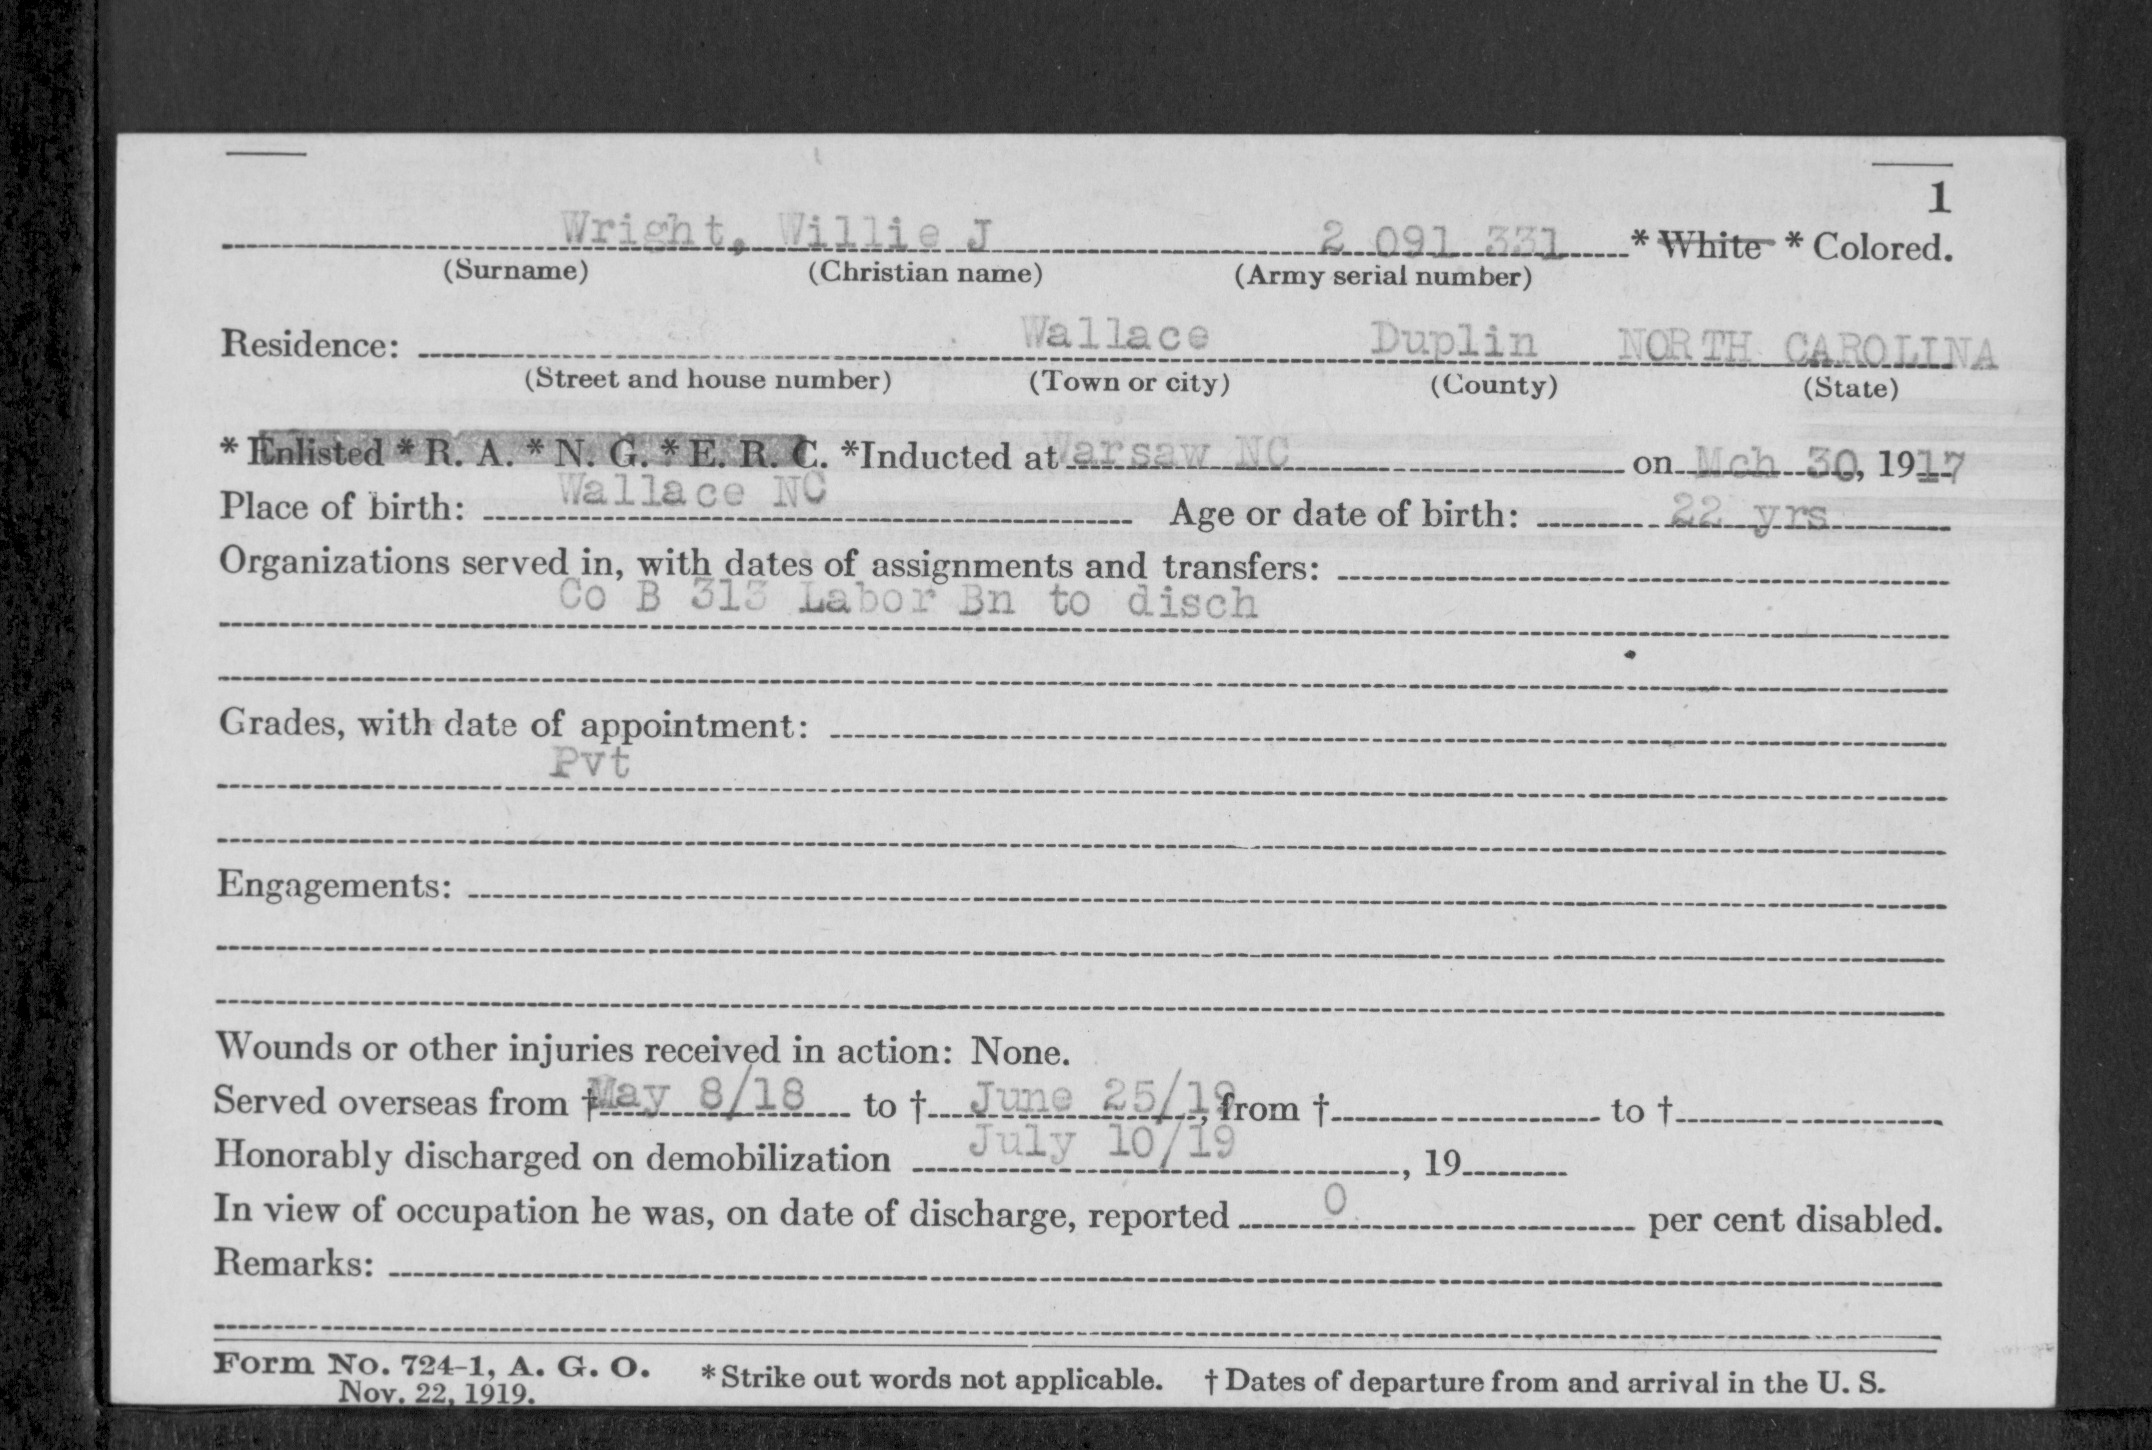 1
Wright, Willie J 2 091 331 * White * Colored.
(Surname) (Christian name) (Army serial number)
Residence: Wallace Duplin NORTH CAROLINA
(Street and house number) (Town or city) (County) (State)
* Enlisted * R. A. * N. G. * E. R. C. *Inducted at Warsaw NC on Mch 30, 1917
Place of birth: Wallace NC Age or date of birth: 22 yrs
Organizations served in, with dates of assignments and transfers:
Co B 313 Labor Bn to disch
Grades, with date of appointment:
Pvt
Engagements:
Wounds or other injuries received in action: None.
Served overseas from † May 8/18 to † June 25/19, from † to †
Honorably discharged on demobilization July 10/19, 19
In view of occupation he was, on date of discharge, reported 0 per cent disabled.
Remarks:
Form No. 724-1, A. G. O. * Strike out words not applicable. † Dates of departure from and arrival in the U. S.
Nov. 22, 1919.